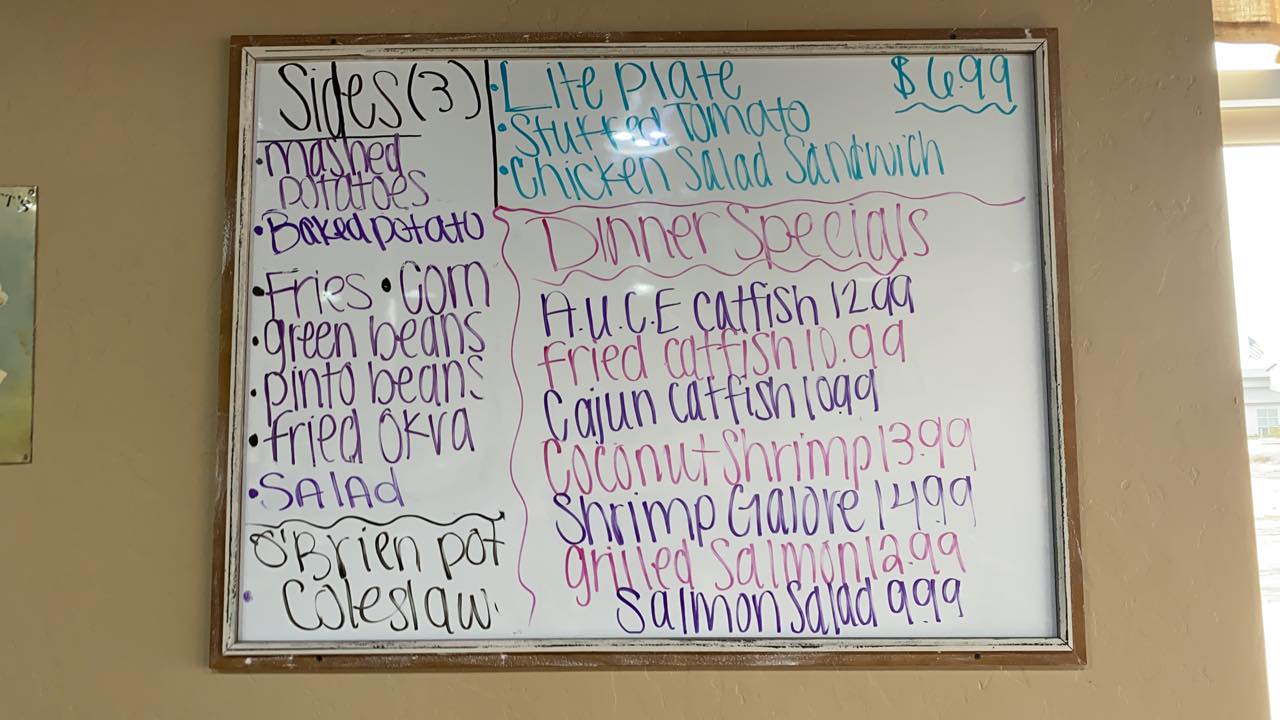 Sides (3)
• mashed
potatoes
• Baked potato
• Fries • Corn
• green beans
• pinto beans
• fried okra
• Salad
O'Brien pot
Coleslaw.
• Lite Plate $6.99
• Stuffed Tomato
• Chicken Salad Sandwich
Dinner Specials
A.U.C.E Catfish 12.99
fried catfish 10.99
Cajun Catfish 1099
Coconut Shrimp 13.99
Shrimp Galore 1499
grilled Salmon 12.99
Salmon Salad 999